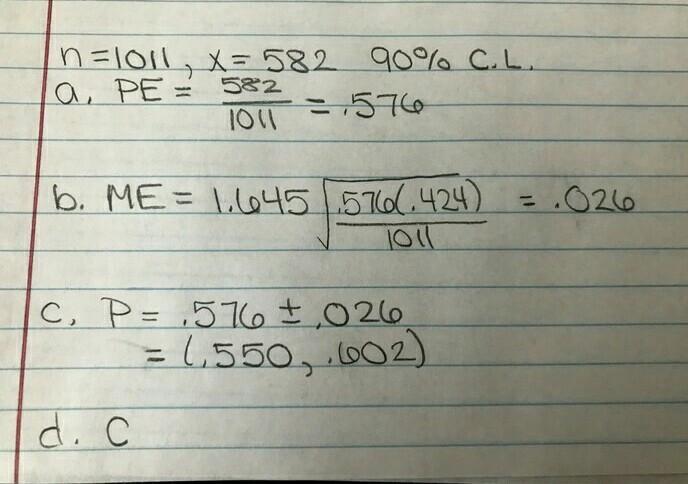 n=1011, x= 582 90% C.L.
a. PE = 582/1011 = .576
b. ME = 1.645 √(.576(.424)/1011) = .026
c. P = .576 ± .026
= (.550, .602)
d. C